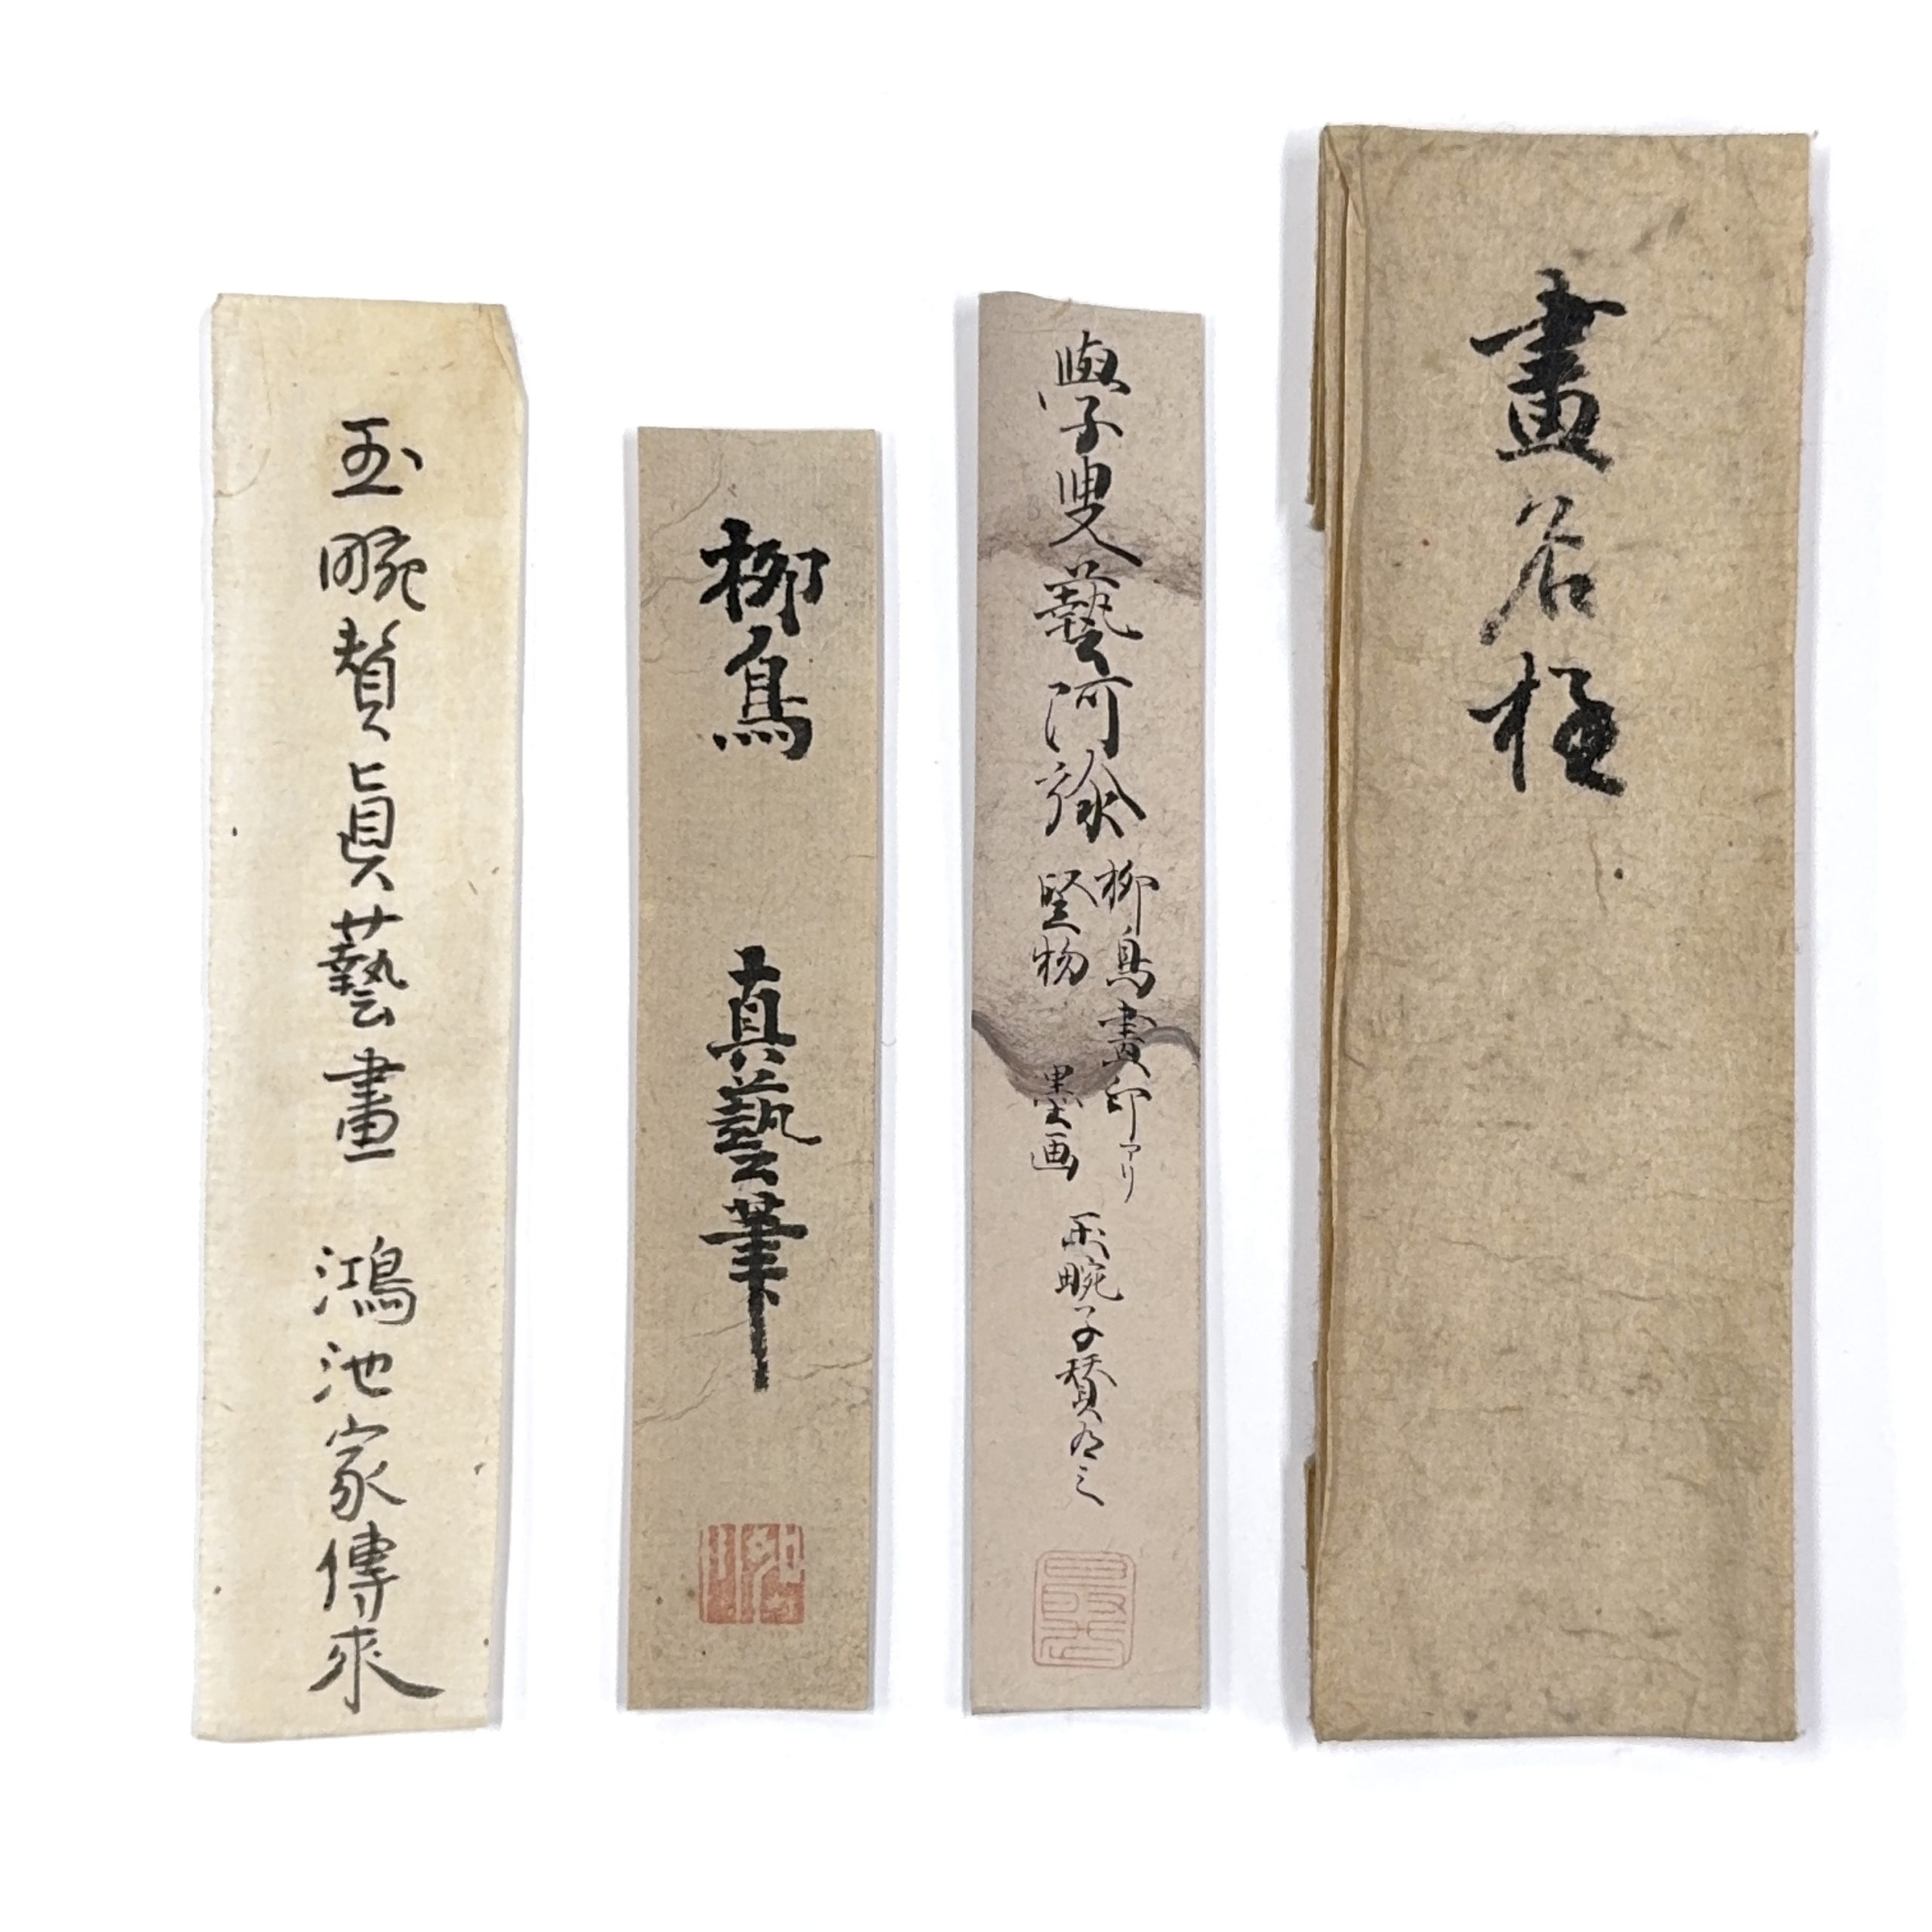 畫名極
子叟藝阿弥
柳鳥畫印アリ
竪物 墨画
玉畹子賛有之
柳鳥 真藝筆
玉畹賛眞藝畫 鴻池家傳來